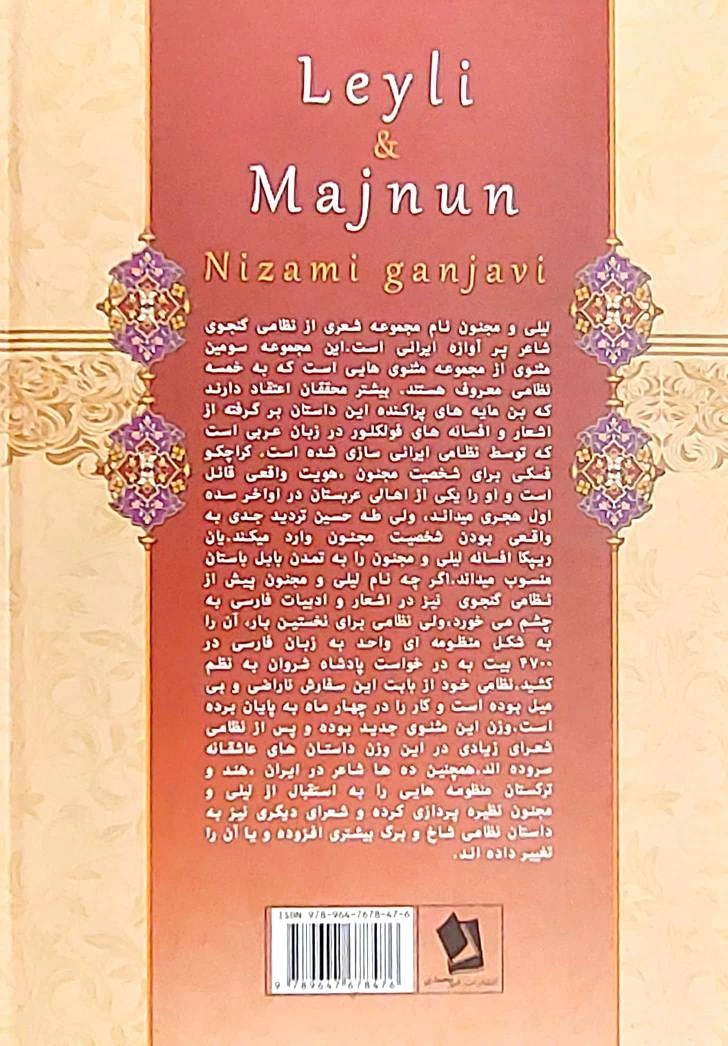 Leyli
&
Majnun
Nizami ganjavi
لیلی و مجنون نام مجموعه شعری از نظامی گنجوی
شاعر پر آوازه ایرانی است.این مجموعه سومین
مثنوی از مجموعه مثنوی هایی است که به خمسه
نظامی معروف هستند. بیشتر محققان اعتقاد دارند
که بن مایه های پراکنده این داستان بر گرفته از
اشعار و افسانه های فولکلور در زبان عربی است
که توسط نظامی ایرانی سازی شده است. کراچکو
فسکی برای شخصیت مجنون ،هویت واقعی قائل
است و او را یکی از اهالی عربستان در اواخر سده
اول هجری میداند، ولی طه حسین تردید جدی به
واقعی بودن شخصیت مجنون وارد میکند.یان
ریپکا افسانه لیلی و مجنون را به تمدن بابل باستان
منسوب میداند.اگر چه نام لیلی و مجنون پیش از
نظامی گنجوی نیز در اشعار و ادبیات فارسی به
چشم می خورد،ولی نظامی برای نخستین بار، آن را
به شکل منظومه ای واحد به زبان فارسی در
۴۷۰۰ بیت به در خواست پادشاه شروان به نظم
کشید.نظامی خود از بابت این سفارش ناراضی و بی
میل بوده است و کار را در چهار ماه به پایان برده
است.وزن این مثنوی جدید بوده و پس از نظامی
شعرای زیادی در این وزن داستان های عاشقانه
سروده اند.همچنین ده ها شاعر در ایران ،هند و
ترکستان منظومه هایی را به استقبال از لیلی و
مجنون نظیره پردازی کرده و شعرای دیگری نیز به
داستان نظامی شاخ و برگ بیشتری افزوده و یا آن را
تغییر داده اند.
ISBN 978-964-7678-47-6
9 789647 678476
انتشارات